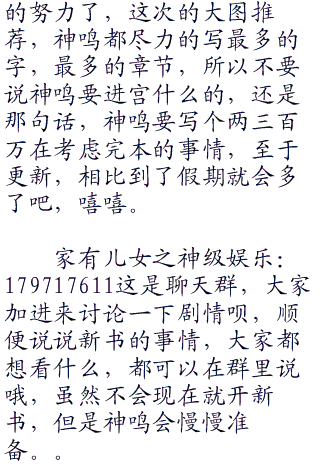 的努力了，这次的大图推
荐，神鸣都尽力的写最多的
字，最多的章节，所以不要
说神鸣要进宫什么的，还是
那句话，神鸣要写个两三百
万在考虑完本的事情，至于
更新，相比到了假期就会多
了吧，嘻嘻。
家有儿女之神级娱乐：
179717611这是聊天群，大家
加进来讨论一下剧情呗，顺
便说说新书的事情，大家都
想看什么，都可以在群里说
哦，虽然不会现在就开新
书，但是神鸣会慢慢准
备。。